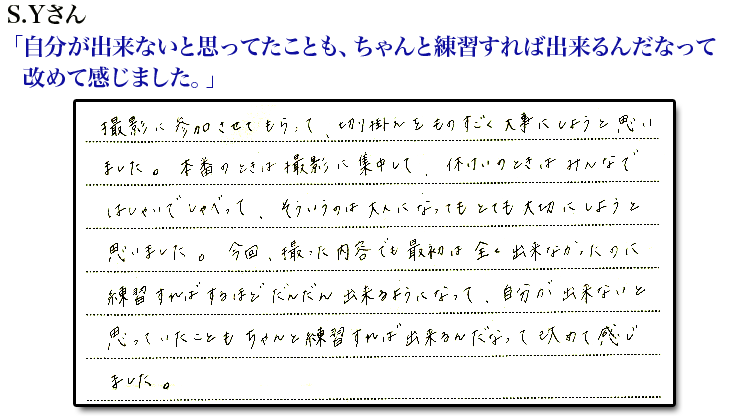 S.Yさん
「自分が出来ないと思ってたことも、ちゃんと練習すれば出来るんだなって
改めて感じました。」
撮影に参加させてもらって、切り掛んをものすごく大事にしようと思い
ました。本番のときは撮影に集中して、休けいのときはみんなで
はしゃいでしゃべって、そういうのは大人になってもとても大切にしようと
思いました。今回、撮った内容でも最初は全く出来なかったのに
練習すればするほどだんだん出来るようになって、自分が出来ないと
思っていたこともちゃんと練習すれば出来るんだなって改めて感じ
ました。